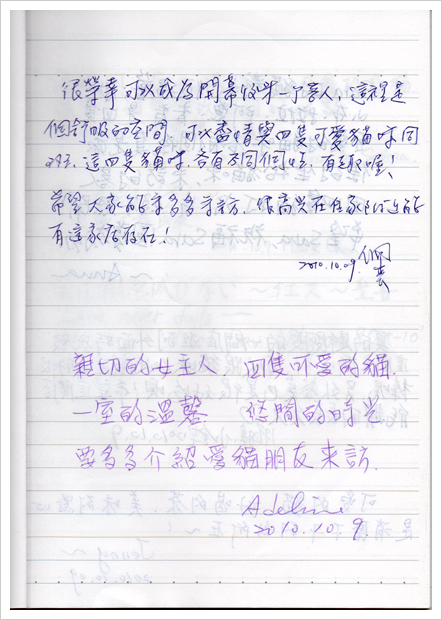 很榮幸可以成為開幕後第一個客人，這裡是
個舒服的空間，可以盡情與四隻可愛貓咪同
樂，這四隻貓咪，各有不同個性，有趣喔！
希望大家能多多來訪，很高兴在住家附近能
有這家店存在！
2010.10.09.
親切的女主人　四隻可愛的貓.
一室的溫馨　悠閒的時光
要多多介紹愛貓朋友來訪.
Adeline
2010.10.9.